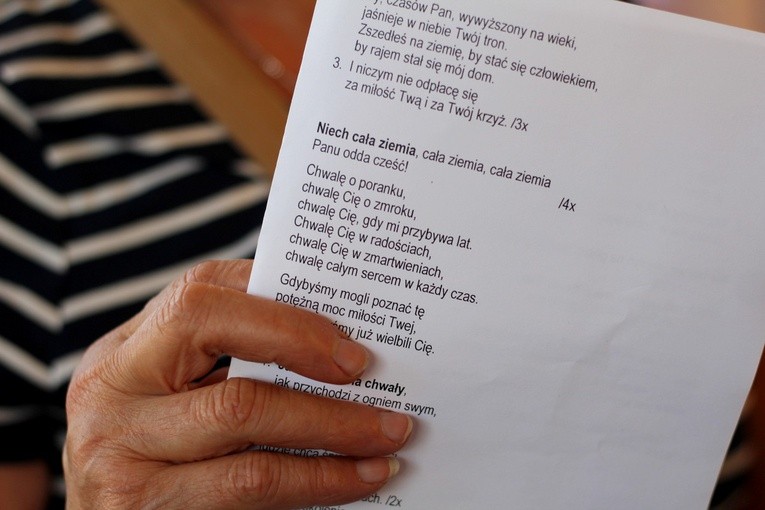 czasów Pan, wywyższony na wieki,
jaśnieje w niebie Twój tron.
Zszedłeś na ziemię, by stać się człowiekiem,
by rajem stał się mój dom.
3. I niczym nie odpłacę się
za miłość Twą i za Twój krzyż. /3x
Niech cała ziemia, cała ziemia, cała ziemia
Panu odda cześć! /4x
Chwalę o poranku,
chwalę Cię o zmroku,
chwalę Cię, gdy mi przybywa lat.
Chwalę Cię w radościach,
chwalę Cię w zmartwieniach,
chwalę całym sercem w każdy czas.
Gdybyśmy mogli poznać tę
potężną moc miłości Twej,
już wielbili Cię.
chwały,
jak przychodzi z ogniem swym,
/2x